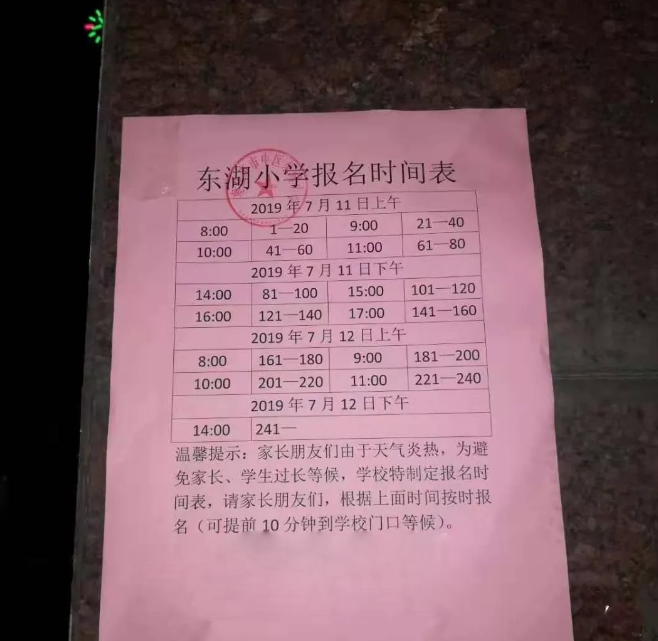 东湖小学报名时间表
2019 年 7 月 11 日上午
8:00 1—20 9:00 21—40
10:00 41—60 11:00 61—80
2019 年 7 月 11 日下午
14:00 81—100 15:00 101—120
16:00 121—140 17:00 141—160
2019 年 7 月 12 日上午
8:00 161—180 9:00 181—200
10:00 201—220 11:00 221—240
2019 年 7 月 12 日下午
14:00 241—
温馨提示：家长朋友们由于天气炎热，为避
免家长、学生过长等候，学校特制定报名时
间表，请家长朋友们，根据上面时间按时报
名（可提前 10 分钟到学校门口等候）。